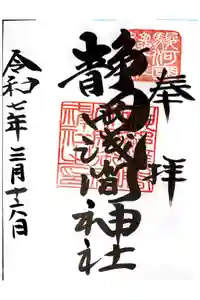 奉拝
静岡浅間神社
令和七年三月十六日